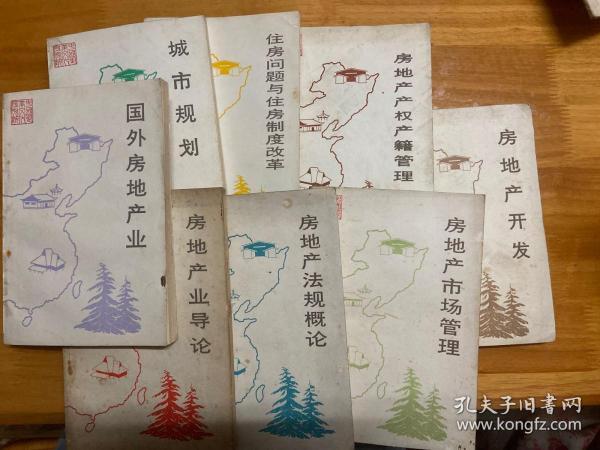 城市规划
住房问题与住房制度改革
房地产产权产籍管理
国外房地产业
房地产开发
房地产业导论
房地产法规概论
房地产市场管理
孔夫子旧书网
www.kongfz.com